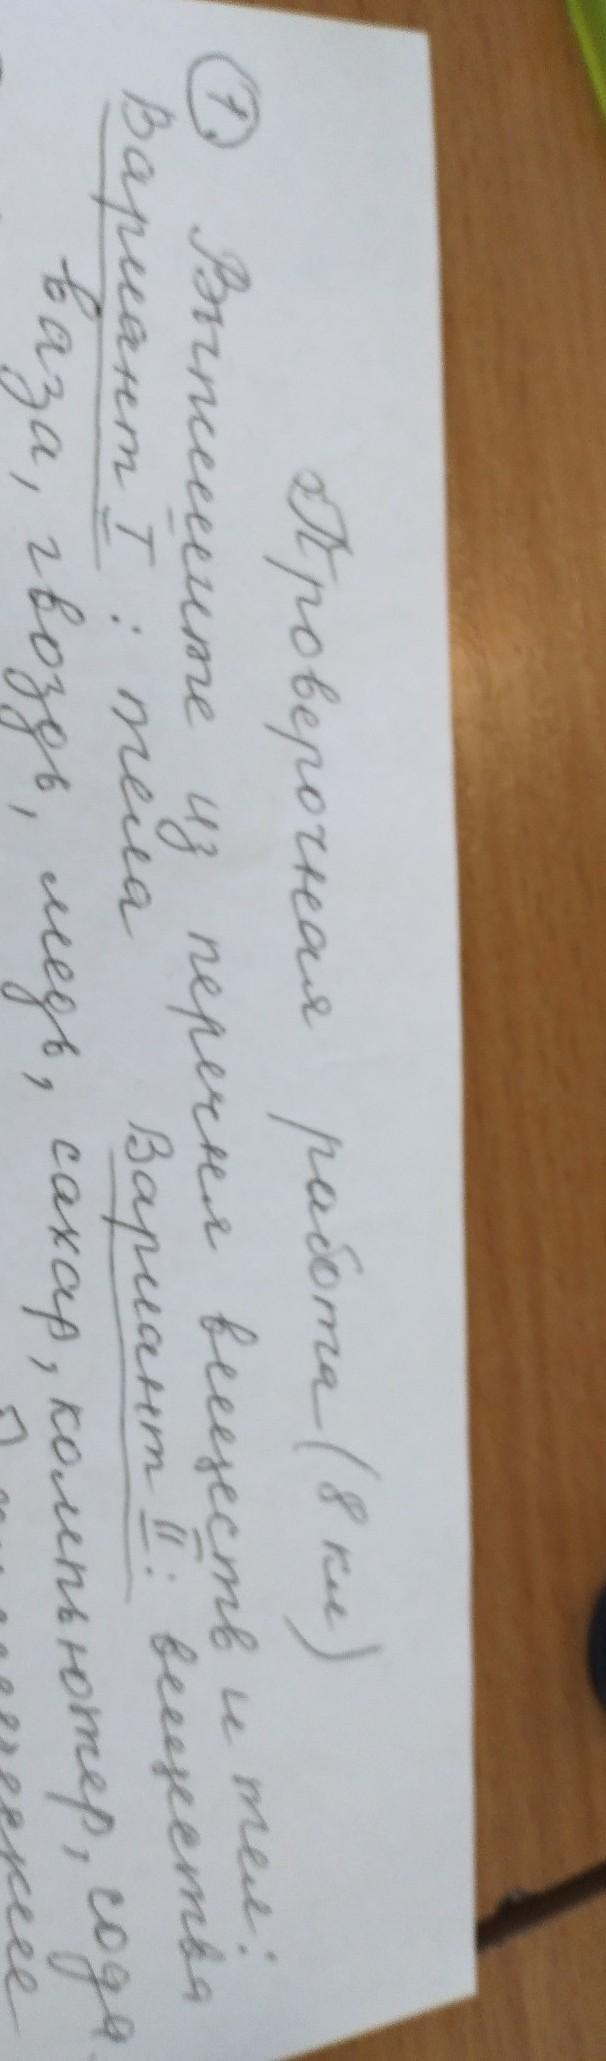 Проверочная работа (8 кл)
1. Выпишите из перечня веществ и тел:
Вариант I: тела Вариант II: вещества
ваза, гвоздь, медь, сахар, компьютер, сода.